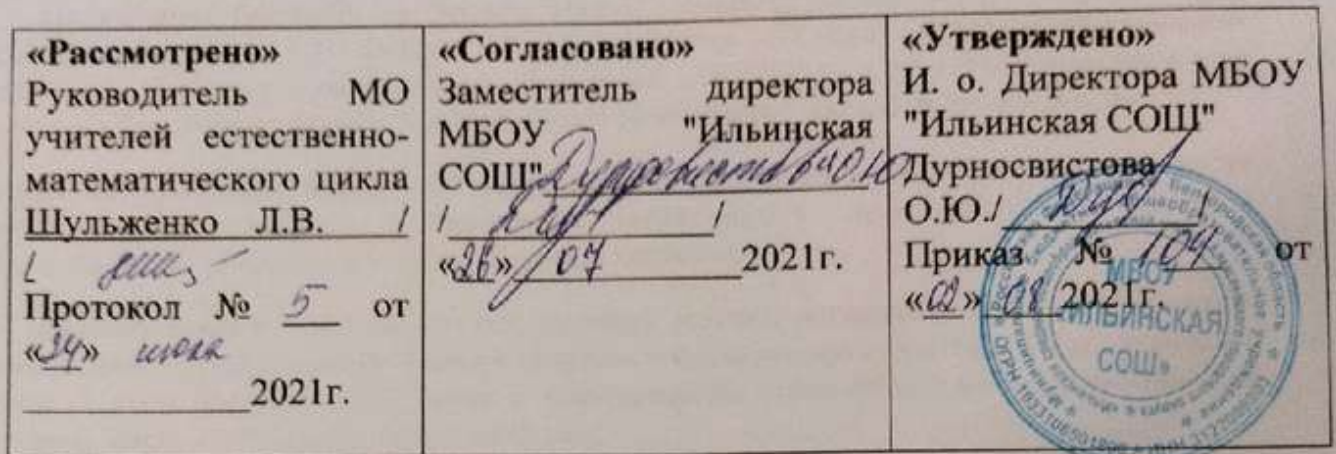 «Рассмотрено»
Руководитель МО
учителей естественно-
математического цикла
Шульженко Л.В. /
/
Протокол № 5 от
«24» июля
2021г.
«Согласовано»
Заместитель директора
МБОУ "Ильинская
СОШ" Дурносвистова О.Ю
/ /
«26» 07 2021г.
«Утверждено»
И. о. Директора МБОУ
"Ильинская СОШ"
Дурносвистова
О.Ю./ /
Приказ № 104 от
«02» 08 2021г.
МБОУ
«ИЛЬИНСКАЯ
СОШ»